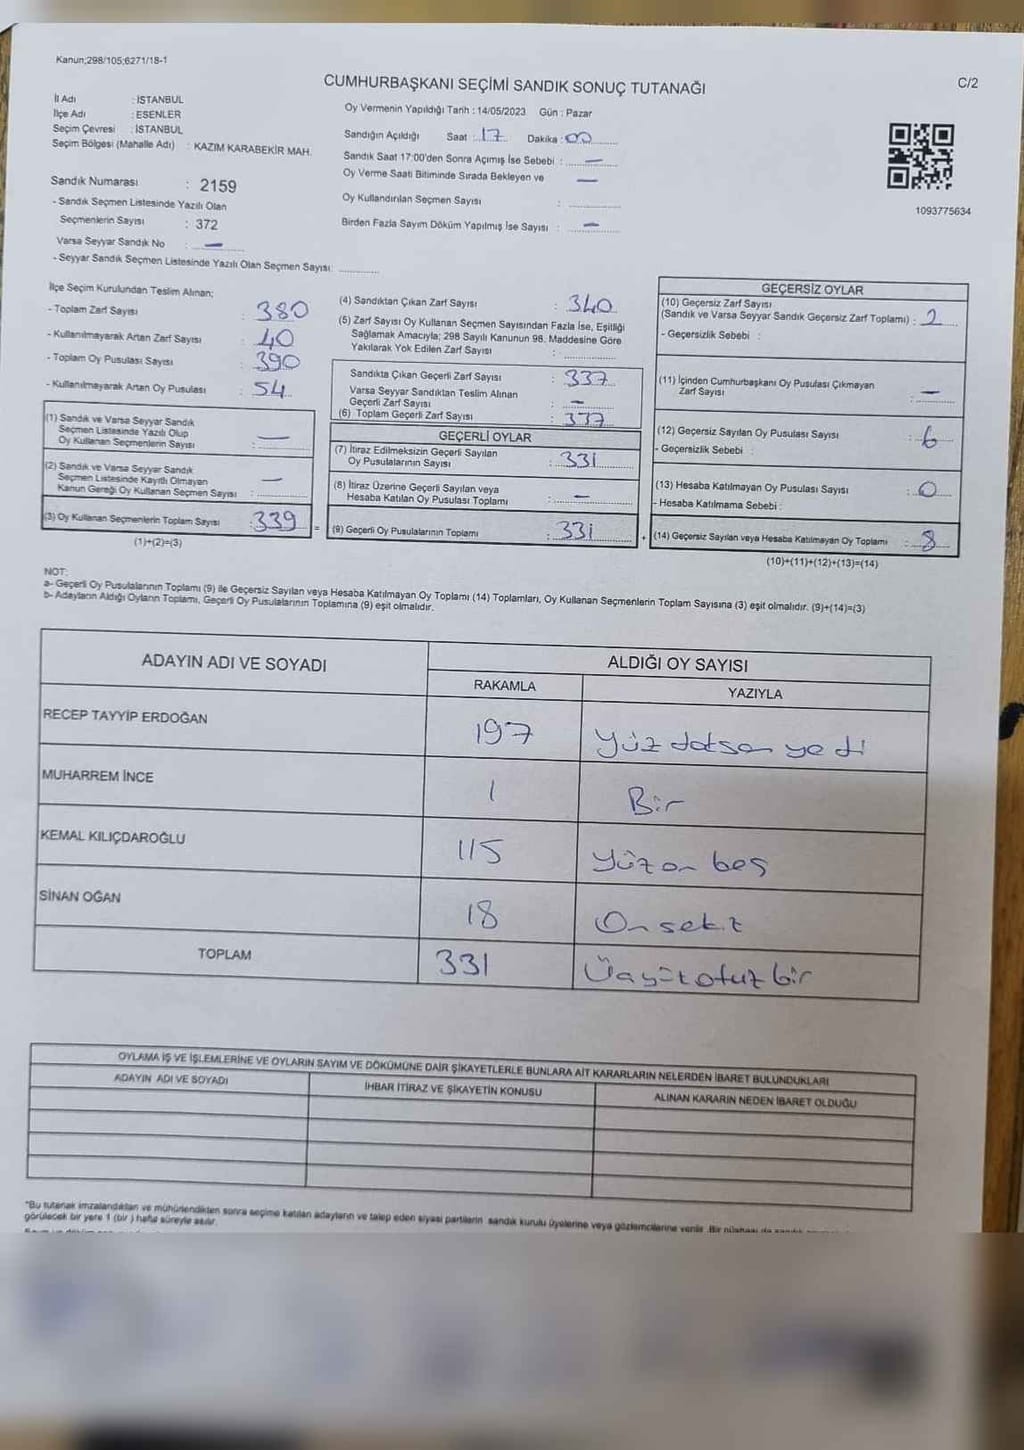 Kanun;298/105;6271/18-1
CUMHURBAŞKANI SEÇİMİ SANDIK SONUÇ TUTANAĞI
C/2
İl Adı : İSTANBUL
İlçe Adı : ESENLER
Seçim Çevresi : İSTANBUL
Seçim Bölgesi (Mahalle Adı) : KAZIM KARABEKİR MAH.
Sandık Numarası : 2159
- Sandık Seçmen Listesinde Yazılı Olan
Seçmenlerin Sayısı : 372
Varsa Seyyar Sandık No : —
- Seyyar Sandık Seçmen Listesinde Yazılı Olan Seçmen Sayısı:
Oy Vermenin Yapıldığı Tarih : 14/05/2023 Gün : Pazar
Sandığın Açıldığı Saat : 17 Dakika : 00
Sandık Saat 17:00'den Sonra Açımış İse Sebebi : —
Oy Verme Saati Bitiminde Sırada Bekleyen ve —
Oy Kullandırılan Seçmen Sayısı :
Birden Fazla Sayım Döküm Yapılmış İse Sayısı : —
1093775634
İlçe Seçim Kurulundan Teslim Alınan;
- Toplam Zarf Sayısı : 380
- Kullanılmayarak Artan Zarf Sayısı : 40
- Toplam Oy Pusulası Sayısı : 390
- Kullanılmayarak Artan Oy Pusulası : 54
(1) Sandık ve Varsa Seyyar Sandık
Seçmen Listesinde Yazılı Olup
Oy Kullanan Seçmenlerin Sayısı : —
(2) Sandık ve Varsa Seyyar Sandık
Seçmen Listesinde Kayıtlı Olmayan
Kanun Gereği Oy Kullanan Seçmen Sayısı : —
(3) Oy Kullanan Seçmenlerin Toplam Sayısı : 339 =
(1)+(2)=(3)
(4) Sandıktan Çıkan Zarf Sayısı : 340
(5) Zarf Sayısı Oy Kullanan Seçmen Sayısından Fazla İse, Eşitliği
Sağlamak Amacıyla; 298 Sayılı Kanunun 98. Maddesine Göre
Yakılarak Yok Edilen Zarf Sayısı :
Sandıkta Çıkan Geçerli Zarf Sayısı : 337
Varsa Seyyar Sandıktan Teslim Alınan
Geçerli Zarf Sayısı : —
(6) Toplam Geçerli Zarf Sayısı : 337
GEÇERLİ OYLAR
(7) İtiraz Edilmeksizin Geçerli Sayılan
Oy Pusulalarının Sayısı : 331
(8) İtiraz Üzerine Geçerli Sayılan veya
Hesaba Katılan Oy Pusulası Toplamı : —
(9) Geçerli Oy Pusulalarının Toplamı : 331
GEÇERSİZ OYLAR
(10) Geçersiz Zarf Sayısı
(Sandık ve Varsa Seyyar Sandık Geçersiz Zarf Toplamı) : 2
- Geçersizlik Sebebi :
(11) İçinden Cumhurbaşkanı Oy Pusulası Çıkmayan
Zarf Sayısı : —
(12) Geçersiz Sayılan Oy Pusulası Sayısı : 6
- Geçersizlik Sebebi :
(13) Hesaba Katılmayan Oy Pusulası Sayısı : 0
- Hesaba Katılmama Sebebi :
(14) Geçersiz Sayılan veya Hesaba Katılmayan Oy Toplamı : 8
(10)+(11)+(12)+(13)=(14)
NOT:
a- Geçerli Oy Pusulalarının Toplamı (9) ile Geçersiz Sayılan veya Hesaba Katılmayan Oy Toplamı (14) Toplamları, Oy Kullanan Seçmenlerin Toplam Sayısına (3) eşit olmalıdır. (9)+(14)=(3)
b- Adayların Aldığı Oyların Toplamı, Geçerli Oy Pusulalarının Toplamına (9) eşit olmalıdır.
ADAYIN ADI VE SOYADI
ALDIĞI OY SAYISI
RAKAMLA YAZIYLA
RECEP TAYYİP ERDOĞAN 197 Yüz dotsan yedi
MUHARREM İNCE 1 Bir
KEMAL KILIÇDAROĞLU 115 Yüz on beş
SİNAN OĞAN 18 On sekiz
TOPLAM 331 Üçyüzotuz bir
OYLAMA İŞ VE İŞLEMLERİNE VE OYLARIN SAYIM VE DÖKÜMÜNE DAİR ŞİKAYETLERLE BUNLARA AİT KARARLARIN NELERDEN İBARET BULUNDUKLARI
ADAYIN ADI VE SOYADI İHBAR İTİRAZ VE ŞİKAYETİN KONUSU ALINAN KARARIN NEDEN İBARET OLDUĞU
"Bu tutanak imzalandıktan ve mühürlendikten sonra seçime katılan adayların ve talep eden siyasi partilerin sandık kurulu üyelerine veya gözlemcilerine verilir. Bir nüshası da sandık
görülecek bir yere 1 (bir) hafta süreyle asılır.